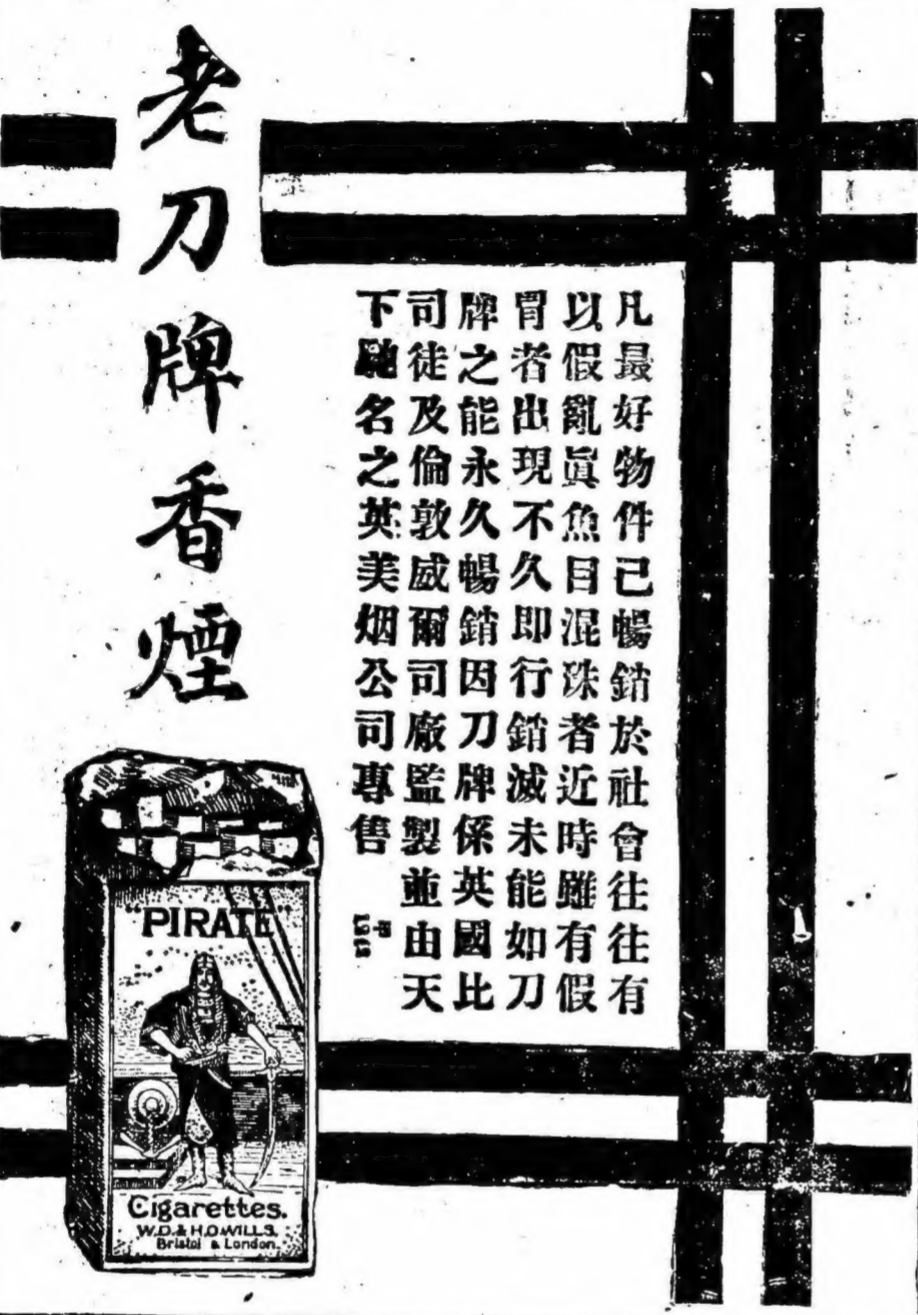 老刀牌香煙
凡最好物件已暢銷於社會往往有
以假亂眞魚目混珠者近時雖有假
冒者出現不久即行銷滅未能如刀
牌之能永久暢銷因刀牌係英國比
司徒及倫敦威爾司廠監製並由天
下馳名之英美烟公司專售
"PIRATE"
Cigarettes.
W.D. & H.O. WILLS.
Bristol & London.